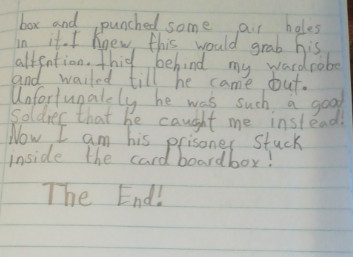 box and punched some air holes
in it. I knew this would grab his
attention. I hid behind my wardrobe
and waited till he came out.
Unfortunately he was such a good
Soldier that he caught me instead!
Now I am his prisoner stuck
inside the cardboardbox!
The End!